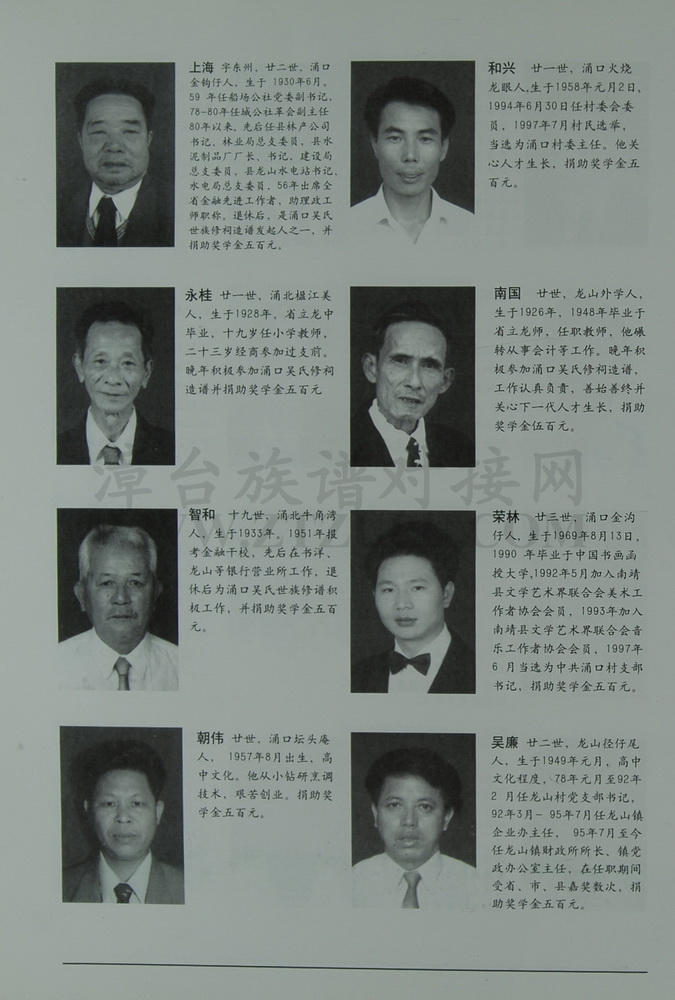 上海 字东州，廿二世，涌口
金钩仔人，生于 1930年6月。
59 年任船场公社党委副书记，
78-80年任城公社革会副主任
80年以来，先后任县林产公司
书记，林业局总支委员，县水
泥制品厂厂长、书记，建设局
总支委员，县龙山水电站书记，
水电局总支委员，56年出席全
省金融先进工作者，助理政工
师职称。退休后，是涌口吴氏
世族修祠造谱发起人之一，并
捐助奖学金五百元。
和兴 廿一世，涌口火烧
龙眼人,生于1958年元月2日，
1994年6月30日任村委会委
员，1997年7月村民选举，
当选为涌口村委主任。他关
心人才生长，捐助奖学金五
百元。
永桂 廿一世，涌北楹江美
人，生于1928年，省立龙中
毕业，十九岁任小学教师，
二十三岁经商参加过支前。
晚年积极参加涌口吴氏修祠
造谱并捐助奖学金五百元
南国 廿世，龙山外学人，
生于1926年，1948年毕业于
省立龙师，任职教师，他碾
转从事会计等工作。晚年积
极参加涌口吴氏修祠造谱，
工作认真负责，善始善终并
关心下一代人才生长，捐助
奖学金伍百元。
智和 十九世，涌北牛角湾
人，生于1933年。1951年报
考金融干校，先后在书洋、
龙山等银行营业所工作，退
休后为涌口吴氏世族修谱积
极工作，并捐助奖学金五百
元。
荣林 廿三世，涌口金沟
仔人，生于1969年8月13日，
1990 年毕业于中国书画函
授大学,1992年5月加入南靖
县文学艺术界联合会美术工
作者协会会员，1993年加入
南靖县文学艺术界联合会音
乐工作者协会会员，1997年
6 月当选为中共涌口村支部
书记，捐助奖学金五百元。
朝伟 廿世，涌口坛头庵
人， 1957年8月出生，高
中文化。他从小钻研烹调
技术，艰苦创业。捐助奖
学金五百元。
吴廉 廿二世，龙山径仔尾
人，生于1949年元月，高中
文化程度，78年元月至92年
2 月任龙山村党支部书记，
92年3月- 95年7月任龙山镇
企业办主任， 95年7月至今
任龙山镇财政所所长、镇党
政办公室主任，在任职期间
受省、市、县嘉奖数次，捐
助奖学金五百元。
漳台族谱对接网